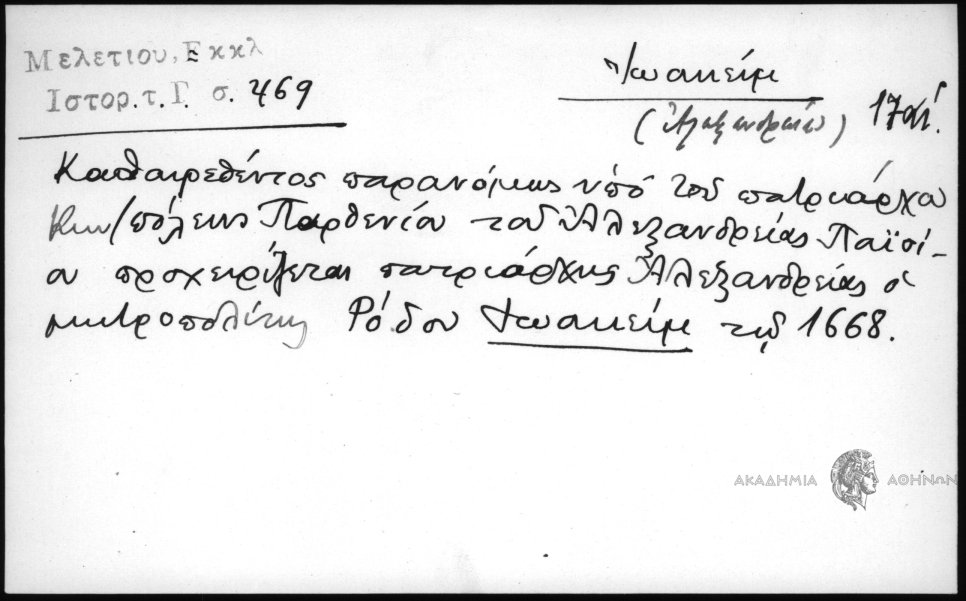 Μελετίου, Εκκλ
Ιστορ. τ. Γ σ. 469
Ἰωακείμ
(Ἀλεξανδρείας) 17 αἰ.
Καθαιρεθέντος παρανόμως ὑπό τοῦ πατριάρχου
Κων/πόλεως Παρθενίου τοῦ Ἀλεξανδρείας Παϊσί-
ου προχειρίζεται πατριάρχης Ἀλεξανδρείας ὁ
μητροπολίτης Ρόδου Ἰωακείμ τῷ 1668.
ΑΚΑΔΗΜΙΑ ΑΘΗΝΩΝ